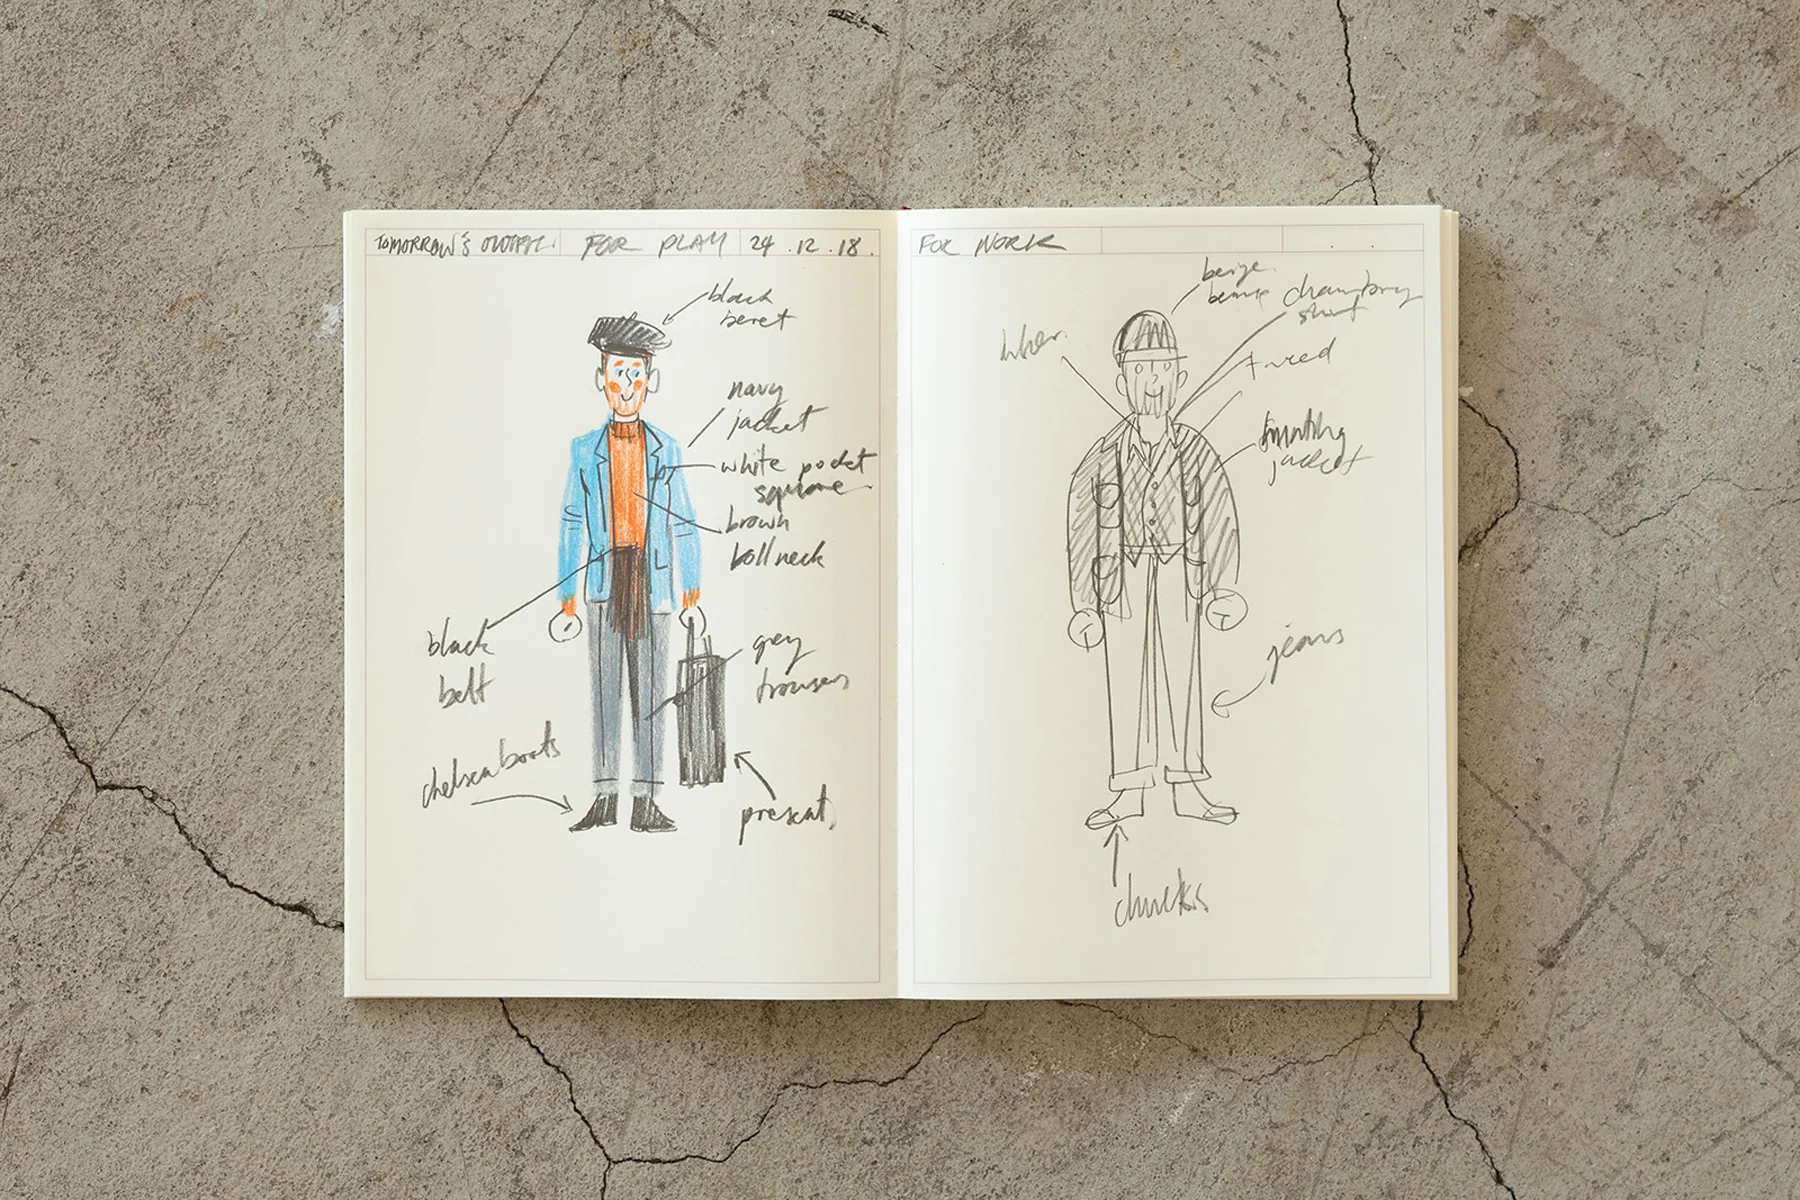 TOMORROW'S OUTFIT.
FOR PLAY
24.12.18.
black
beret
navy
jacket
white pocket
square
brown
rollneck
black
belt
grey
trousers
chelsea boots
present
FOR WORK
beige
beanie
chambray
shirt
tweed
jacket
jeans
chucks